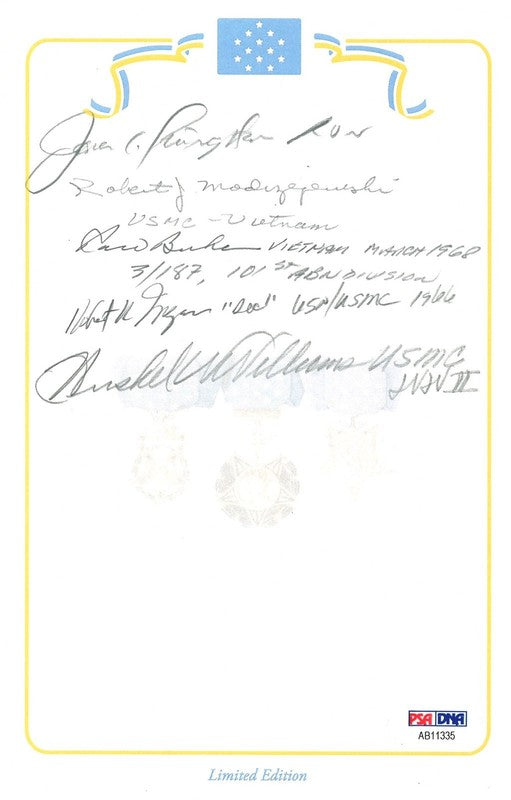 James C.
Robert J Modrzejewski
USMC - Vietnam
VIETNAM MARCH 1968
3/187, 101ST ABN DIVISION
Robert R Ingram "Doc" USN/USMC 1966
Hershel W Williams USMC
WW II
PSA DNA
AB11335
Limited Edition